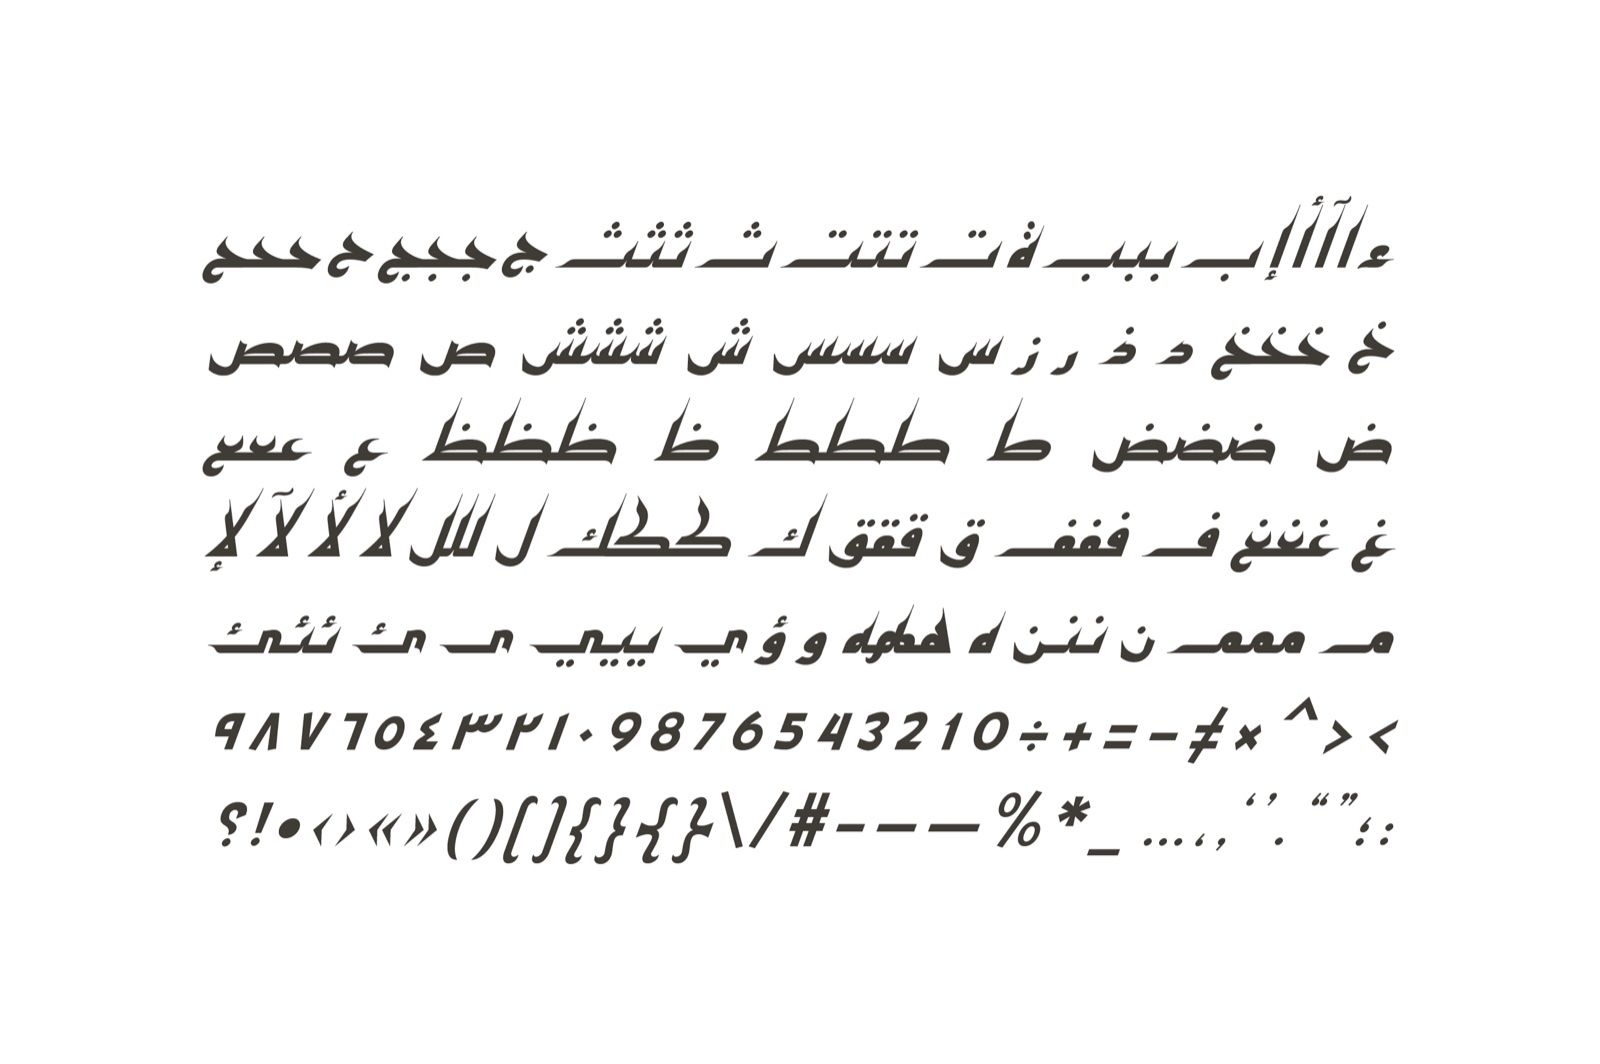 ء ا آ أ إ ب ببب ة ت تتت ث ثثث ج ججج ح ححح
خ خخخ د ذ ر ز س سسس ش ششش ص صصص
ض ضضض ط ططط ظ ظظظ ع ععع
غ غغغ ف ففف ق ققق ك ككك ل للل لا لأ لآ لإ
م ممم ن ننن ه ههه و ؤ ي ييي ى ئ ئئئ
< > ^ × ≠ - = + ÷ 0 1 2 3 4 5 6 7 8 9 ٠ ١ ٢ ٣ ٤ ٥ ٦ ٧ ٨ ٩
: ؛ ” “ . ’ ‘ , ، … _ * % — – - # / \ { } { } [ ] ( ) » « › ‹ • ! ؟